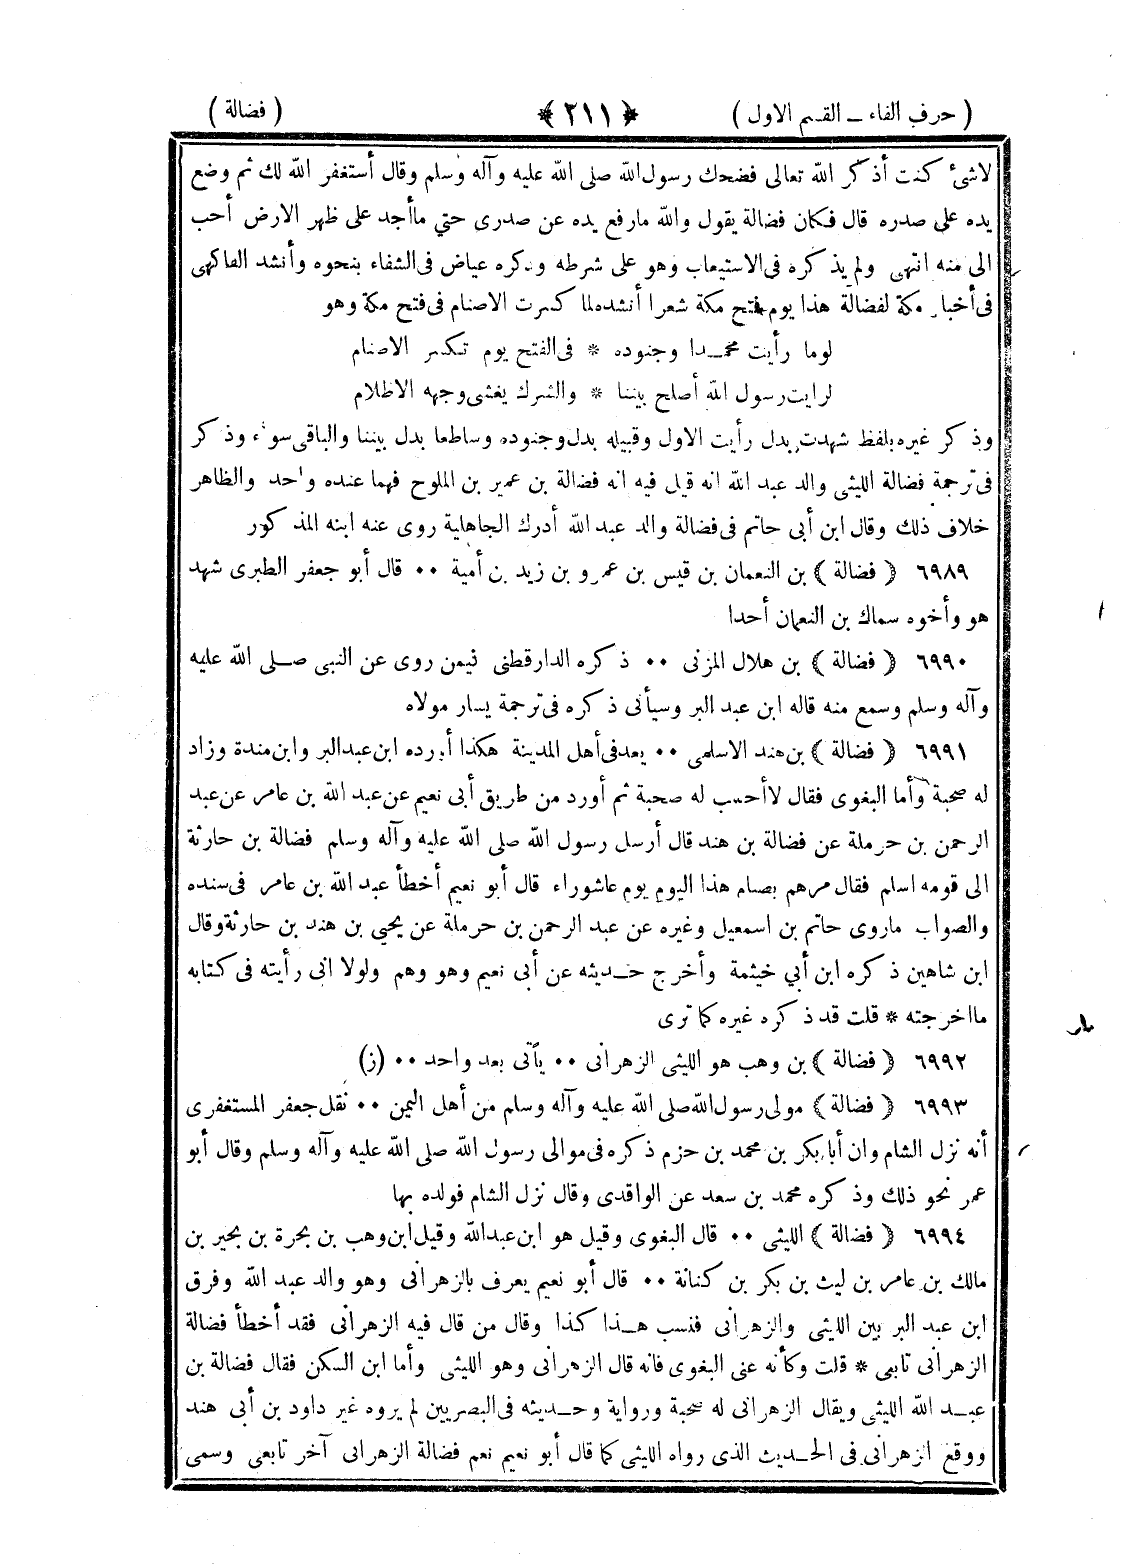 ( حرف الفاء ــ القسم الاول ) ﴿ ٢١١ ﴾ ( فضالة )
لاشئ كنت أذكر الله تعالى فضحك رسول الله صلى الله عليه وآله وسلم وقال أستغفر الله لك ثم وضع
يده على صدره قال فكان فضالة يقول والله مارفع يده عن صدرى حتي ماأجد على ظهر الارض أحب
الى منه انتهى ولم يذكره فى الاستيعاب وهو على شرطه وذكره عياض فى الشفاء بنحوه وأنشد الفاكهى
فى أخبار مكة لفضالة هذا يوم فتح مكة شعرا أنشده لما كسرت الاصنام فى فتح مكة وهو
لوما رأيت محمـدا وجنوده * فى الفتح يوم تكسر الاصنام
لرايت رسول الله أصلح بيننا * والشرك يغشى وجهه الاظلام
وذكر غيره بلفظ شهدت بدل رأيت الاول وقبيله بدل وجنوده وساطعا بدل بيننا والباقى سواء وذكر
فى ترجمة فضالة الليثى والد عبد الله انه قيل فيه انه فضالة بن عمير بن الملوح فهما عنده واحد والظاهر
خلاف ذلك وقال ابن أبى حاتم فى فضالة والد عبد الله أدرك الجاهلية روى عنه ابنه المذكور
٦٩٨٩ ﴿ فضالة ﴾ بن النعمان بن قيس بن عمرو بن زيد بن أمية ٠٠ قال أبو جعفر الطبرى شهد
هو وأخوه سماك بن النعمان أحدا
٦٩٩٠ ﴿ فضالة ﴾ بن هلال المزنى ٠٠ ذكره الدارقطنى فيمن روى عن النبى صـلى الله عليه
وآله وسلم وسمع منه قاله ابن عبد البر وسيأتى ذكره فى ترجمة يسار مولاه
٦٩٩١ ﴿ فضالة ﴾ بن هند الاسلمى ٠٠ يعد فى أهل المدينة هكذا أورده ابن عبد البر وابن مندة وزاد
له صحبة وأما البغوى فقال لاأحسب له صحبة ثم أورد من طريق أبى نعيم عن عبد الله بن عامر عن عبد
الرحمن بن حرملة عن فضالة بن هند قال أرسل رسول الله صلى الله عليه وآله وسلم فضالة بن حارثة
الى قومه اسلم فقال مرهم بصيام هذا اليوم يوم عاشوراء قال أبو نعيم أخطأ عبد الله بن عامر فى سنده
والصواب ماروى حاتم بن اسمعيل وغيره عن عبد الرحمن بن حرملة عن يحيى بن هند بن حارثة وقال
ابن شاهين ذكره ابن أبي خيثمة وأخرج حـديثه عن أبى نعيم وهو وهم ولولا انى رأيته فى كتابه
مااخرجته * قلت قد ذكره غيره كما ترى
٦٩٩٢ ﴿ فضالة ﴾ بن وهب هو الليثى الزهرانى ٠٠ يأتى بعد واحد ٠٠ (ز)
٦٩٩٣ ﴿ فضالة ﴾ مولى رسول الله صلى الله عليه وآله وسلم من أهل اليمن ٠٠ نقل جعفر المستغفرى
أنه نزل الشام وان أبابكر بن محمد بن حزم ذكره فى موالى رسول الله صلى الله عليه وآله وسلم وقال أبو
عمر نحو ذلك وذكره محمد بن سعد عن الواقدى وقال نزل الشام فولده بها
٦٩٩٤ ﴿ فضالة ﴾ الليثى ٠٠ قال البغوى وقيل هو ابن عبدالله وقيل ابن وهب بن بحرة بن بحير بن
مالك بن عامر بن ليث بن بكر بن كنانة ٠٠ قال أبو نعيم يعرف بالزهرانى وهو والد عبد الله وفرق
ابن عبد البر بين الليثى والزهرانى فنسب هـذا كذا وقال من قال فيه الزهرانى فقد أخطأ فضالة
الزهرانى تابعى * قلت وكأنه عنى البغوى فانه قال الزهرانى وهو الليثى وأما ابن السكن فقال فضالة بن
عبـد الله الليثى ويقال الزهرانى له صحبة ورواية وحـديثه فى البصريين لم يروه غير داود بن أبى هند
ووقع الزهرانى فى الحـديث الذى رواه الليثى كما قال أبو نعيم نعم فضالة الزهرانى آخر تابعى وسمى